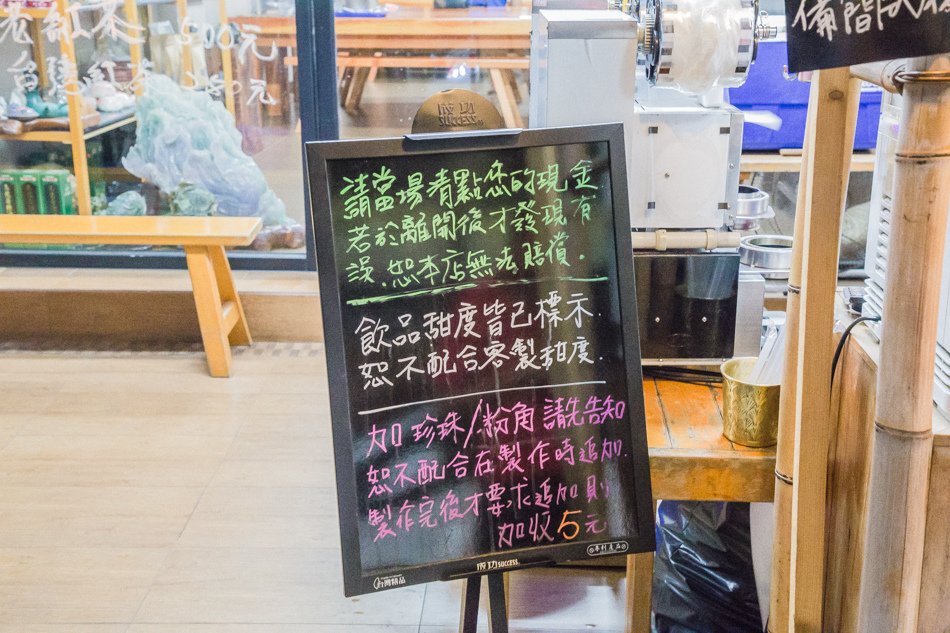 老紅茶 500元
台灣紅茶
成功
SUCCESS
請當場清點您的現金
若於離開後才發現有
誤.恕本店無法賠償.
飲品甜度皆已標示.
恕不配合客製甜度.
加珍珠/粉角請先告知
恕不配合在製作時追加.
製作完後才要求追加則
加收5元
專利產品
成功 success
台灣精品